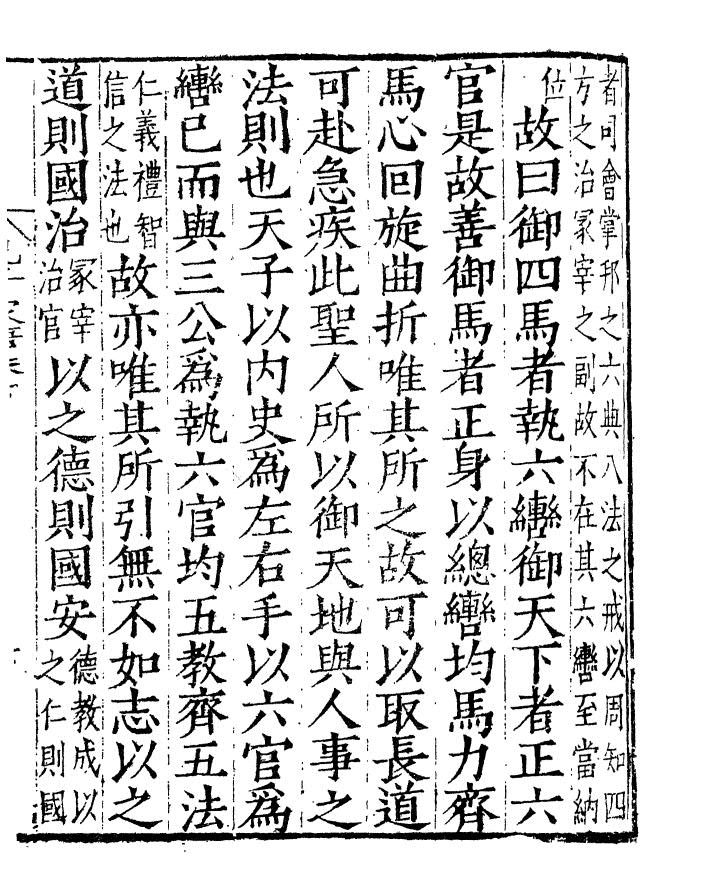 者司會掌邦之六典八法之戒以周知四
方之治冢宰之副故不在其六轡至當納
位
故曰御四馬者執六轡御天下者正六
官是故善御馬者正身以總轡均馬力齊
馬心回旋曲折唯其所之故可以取長道
可赴急疾此聖人所以御天地與人事之
法則也天子以内史爲左右手以六官爲
轡已而與三公爲執六官均五教齊五法
仁義禮智
信之法也
故亦唯其所引無不如志以之
道則國治
冢宰
治官
以之德則國安
德教成以
之仁則國